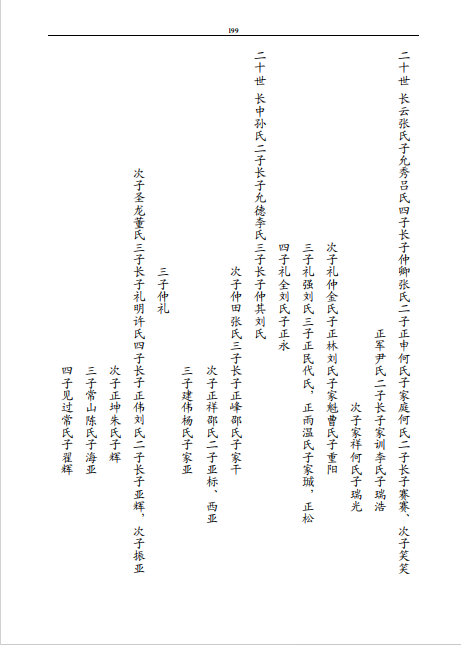 199
二十世 长云张氏子允秀吕氏四子长子仲卿张氏二子正申何氏子家庭何氏二子长子赛赛、次子笑笑
正军尹氏二子长子家训李氏子瑞浩
次子家祥何氏子瑞光
次子礼仲金氏子正林刘氏子家魁曹氏子重阳
三子礼强刘氏三子正民代氏，正雨温氏子家瑊，正松
四子礼全刘氏子正永
二十世 长中孙氏二子长子允德李氏三子长子仲其刘氏
次子仲田张氏三子长子正峰邵氏子家干
次子正祥邵氏二子亚标、西亚
三子建伟杨氏子家亚
三子仲礼
次子圣龙董氏三子长子礼明许氏四子长子正伟刘氏二子长子亚辉，次子振亚
次子正坤朱氏子辉
三子常山陈氏子海亚
四子见过常氏子翟辉